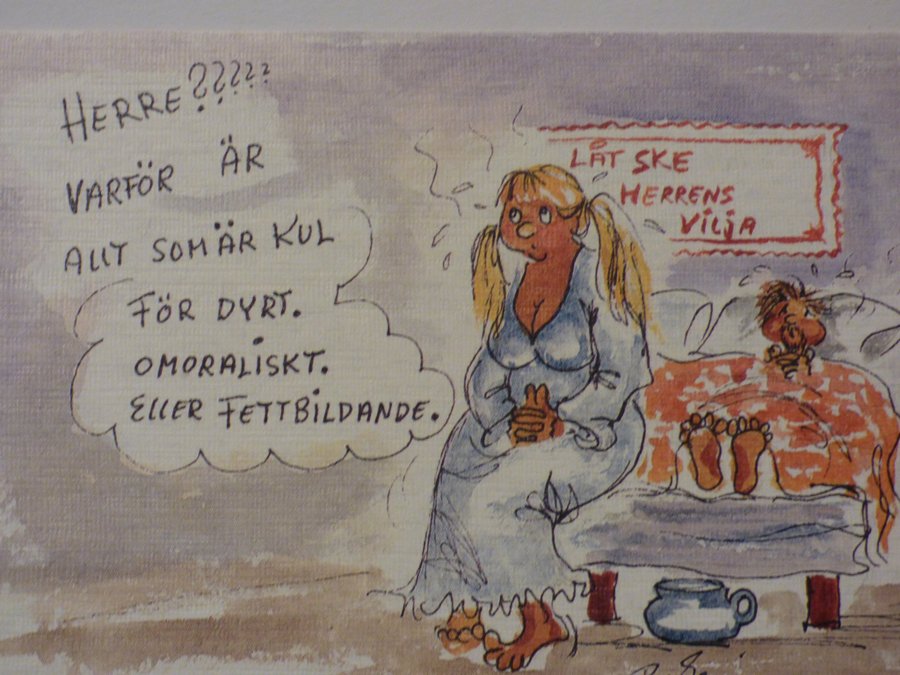 HERRE?????
VARFÖR ÄR
ALLT SOM ÄR KUL
FÖR DYRT.
OMORALISKT.
ELLER FETTBILDANDE.
LÅT SKE
HERRENS
VILJA